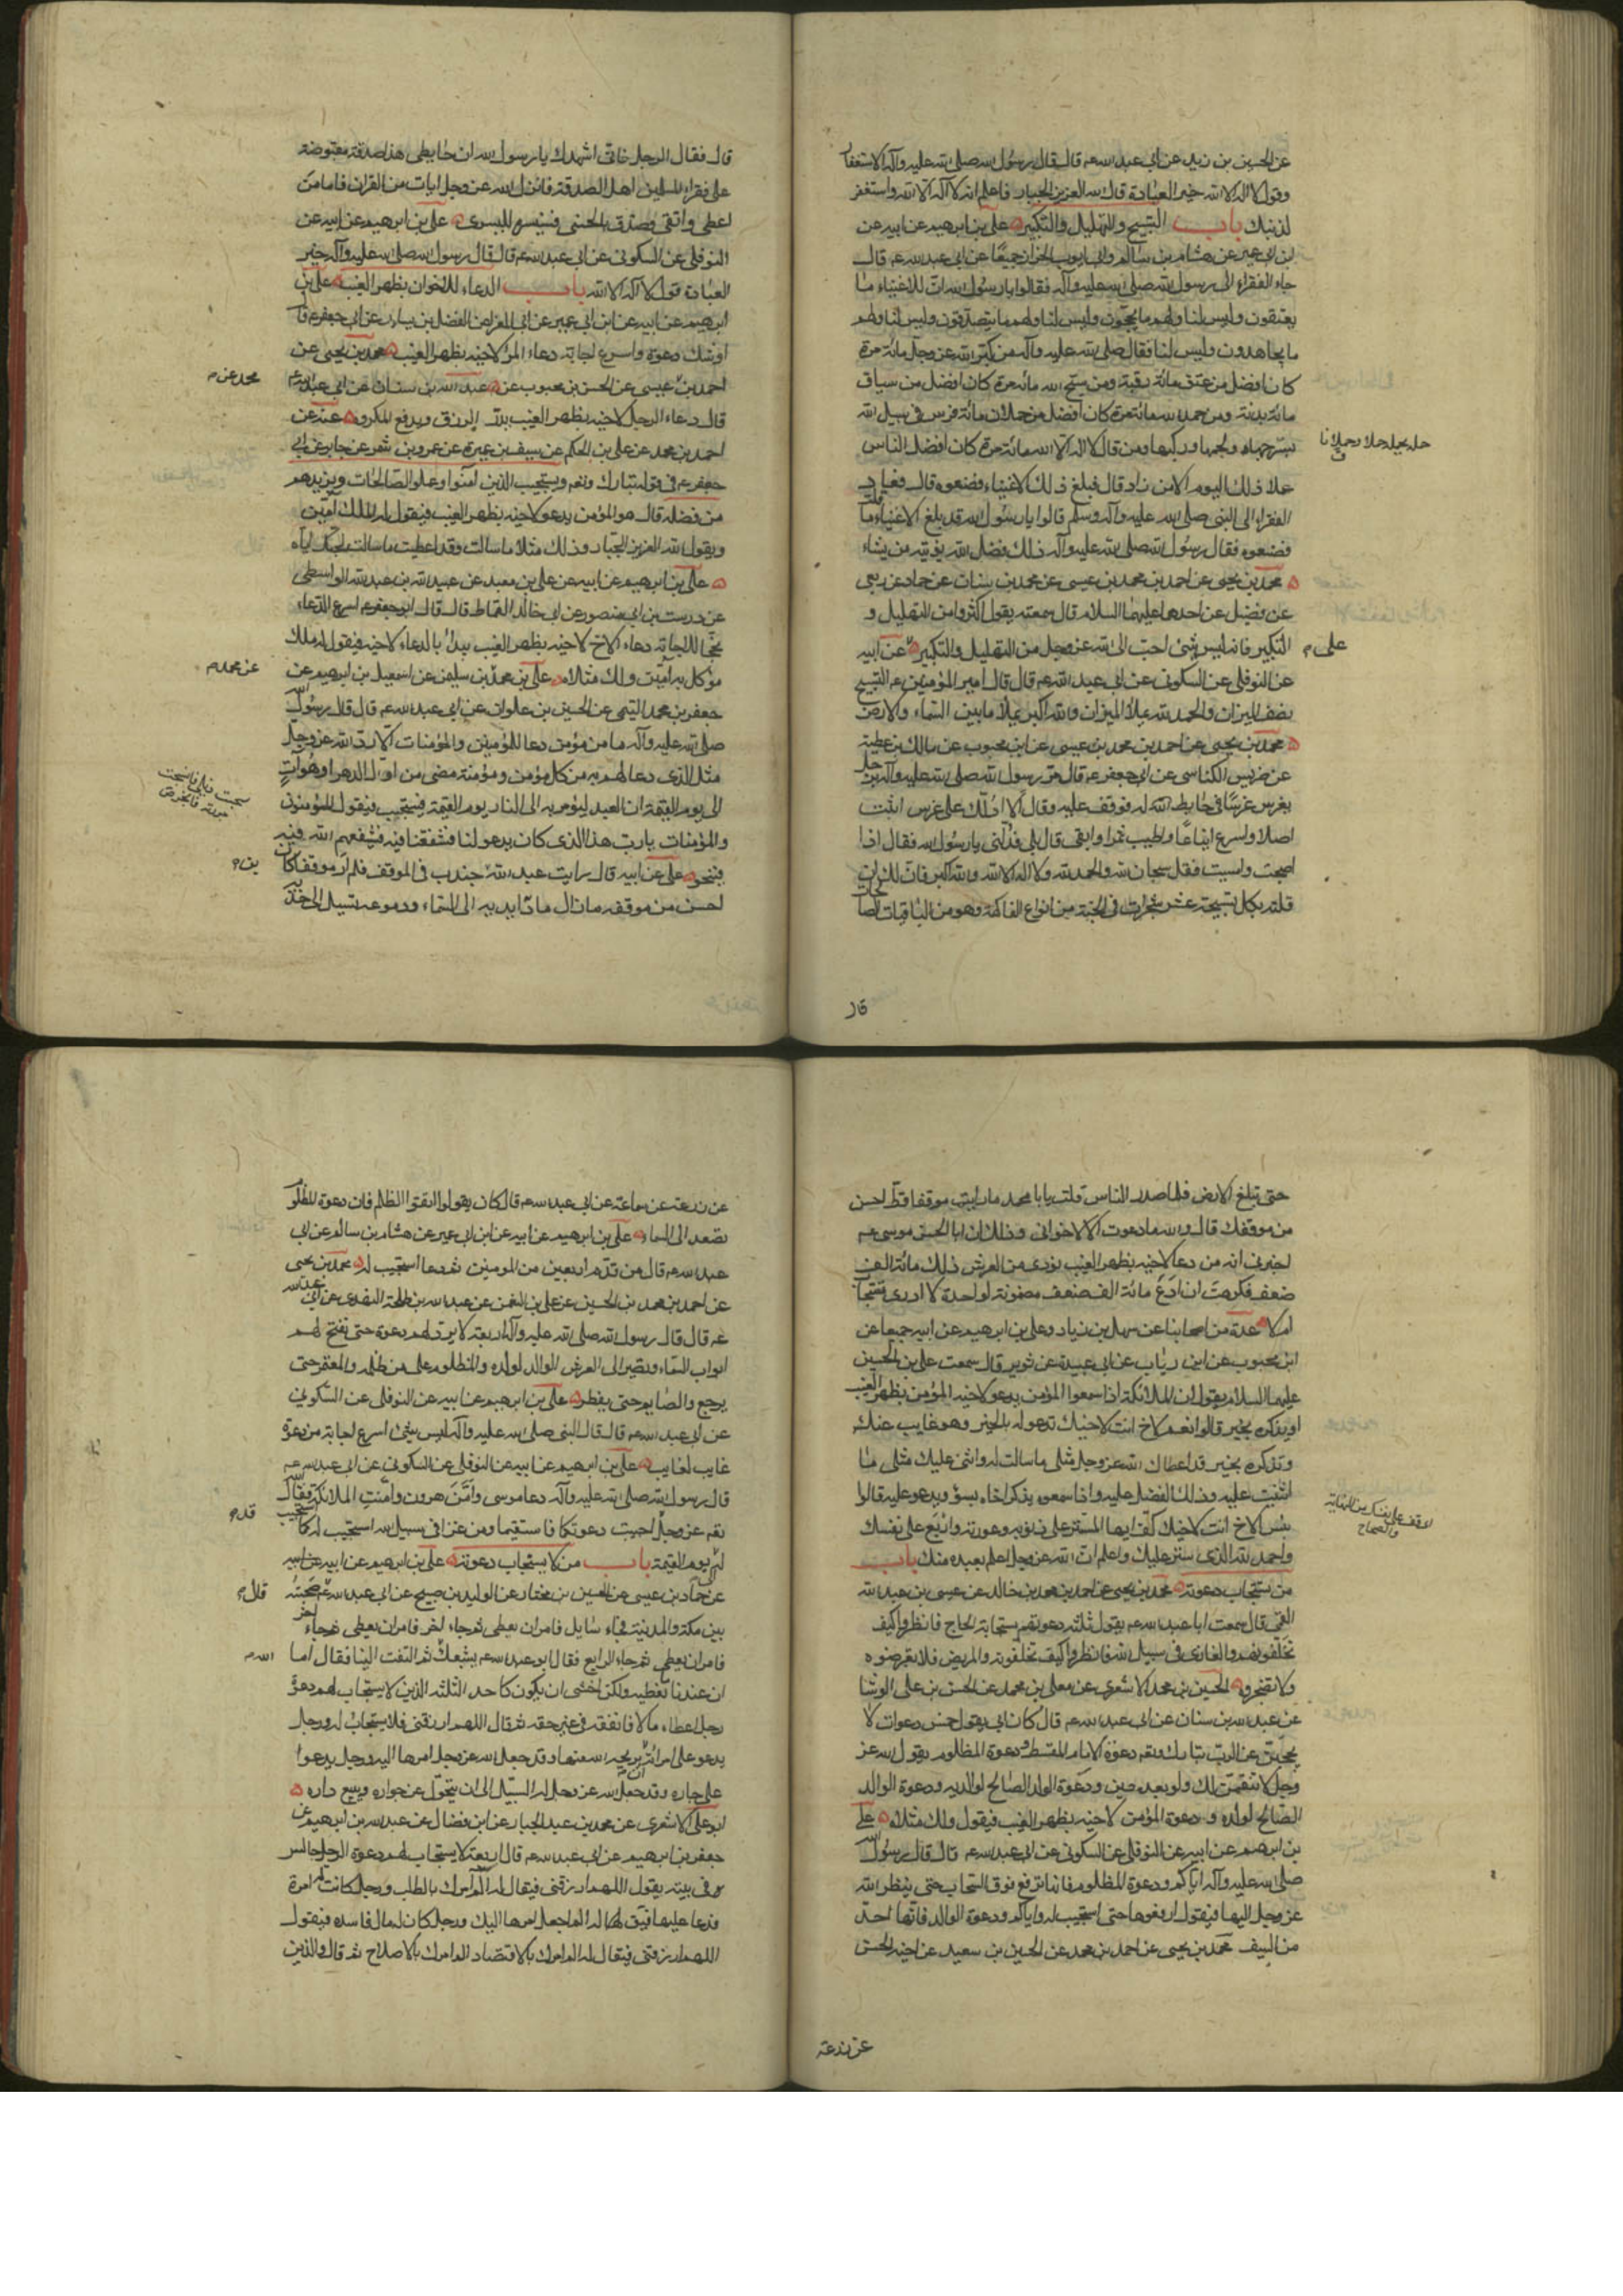 عن الحسين بن زيد عن ابي عبد الله ع قال قال رسول الله صلى الله عليه وآله الاستغفار
وقول لا اله الا الله خير العبادة قال الله العزيز الجبار فاعلم انه لا اله الا الله واستغفر
لذنبك باب التسبيح والتهليل والتكبير علي بن ابرهيم عن ابيه عن
ابن ابي عمير عن هشام بن سالم وابي ايوب الخزاز جميعا عن ابي عبد الله ع قال
جاء الفقراء الى رسول الله صلى الله عليه وآله فقالوا يا رسول الله ان للاغنياء ما
يعتقون وليس لنا ولهم ما يحجون وليس لنا ولهم ما يتصدقون وليس لنا ولهم
ما يجاهدون وليس لنا فقال صلى الله عليه وآله من كبر الله عز وجل مائة مرة
كان افضل من عتق مائة رقبة ومن سبح الله مائة مرة كان افضل من سياق
مائة بدنة ومن حمد الله مائة مرة كان افضل من حملان مائة فرس في سبيل الله
بسرجها ولجمها وركبها ومن قال لا اله الا الله مائة مرة كان افضل الناس
حمله يحمله حملا وحملانا
عملا ذلك اليوم الا من زاد قال فبلغ ذلك الاغنياء فصنعوه قال فعاد
الفقراء الى النبي صلى الله عليه وآله وسلم قالوا يا رسول الله قد بلغ الاغنياء ما قلت
فصنعوه فقال رسول الله صلى الله عليه وآله ذلك فضل الله يؤتيه من يشاء
محمد بن يحيى عن احمد بن محمد بن عيسى عن محمد بن سنان عن حماد عن ربعي
عن فضيل عن احدهما عليهما السلام قال سمعته يقول اكثروا من التهليل و
التكبير فانه ليس شئ احب الى الله عز وجل من التهليل والتكبير عن ابيه
علي م
عن النوفلي عن السكوني عن ابي عبد الله ع قال قال امير المؤمنين ع التسبيح
نصف الميزان والحمد لله يملأ الميزان والله اكبر يملأ ما بين السماء والارض
محمد بن يحيى عن احمد بن محمد بن عيسى عن ابن محبوب عن مالك بن عطية
عن ضريس الكناسي عن ابي جعفر ع قال مر رسول الله صلى الله عليه وآله برجل
يغرس غرسا في حايط له فوقف عليه وقال الا ادلك على غرس اثبت
اصلا واسرع ايناعا واطيب ثمرا وابقى قال بلى فدلني يا رسول الله فقال اذا
اصبحت وامسيت فقل سبحان الله والحمد لله ولا اله الا الله والله اكبر فان لك ان
قلته بكل تسبيحة عشر شجرات في الجنة من انواع الفاكهة وهو من الباقيات الصالحات
قال
قال فقال الرجل فاني اشهدك يا رسول الله ان حايطي هذا صدقة مقبوضة
على فقراء المسلمين اهل الصدقة فانزل الله عز وجل ايات من القران فاما من
اعطى واتقى وصدق بالحسنى فسنيسره لليسرى علي بن ابرهيم عن ابيه عن
النوفلي عن السكوني عن ابي عبد الله ع قال قال رسول الله صلى الله عليه وآله خير
العبادة قول لا اله الا الله باب الدعاء للاخوان بظهر الغيب علي بن
ابرهيم عن ابيه عن ابن ابي عمير عن ابي المغرا عن الفضيل بن يسار عن ابي جعفر ع قال
اوشك دعوة واسرع لاجابة دعاء المرء لاخيه بظهر الغيب محمد بن يحيى عن
احمد بن عيسى عن الحسن بن محبوب عن عبد الله بن سنان عن ابي عبد الله ع
محمد عن م
قال دعاء الرجل لاخيه بظهر الغيب يدر الرزق ويدفع المكروه عنه عن
احمد بن محمد عن علي بن الحكم عن سيف بن عميرة عن عمرو بن شمر عن جابر عن ابي
جعفر ع في قوله تبارك وتعم ويستجيب الذين آمنوا وعملوا الصالحات ويزيدهم
من فضله قال هو المؤمن يدعو لاخيه بظهر الغيب فيقول له الملك آمين
ويقول الله العزيز الجبار وذلك مثلا ما سالت وقد اعطيت ما سالت لحبك اياه
علي بن ابرهيم عن ابيه عن علي بن معبد عن عبيد الله بن عبد الله الواسطي
عن درست بن ابي منصور عن ابي خالد القماط قال قال ابو جعفر ع اسرع الدعاء
نجحا للاجابة دعاء الاخ لاخيه بظهر الغيب يبدأ بالدعاء لاخيه فيقول له ملك
موكل به آمين ولك مثلاه علي بن محمد بن سليمن عن اسمعيل بن ابرهيم عن
عن محمد م
جعفر بن محمد التيمي عن الحسين بن علوان عن ابي عبد الله ع قال قال رسول الله
صلى الله عليه وآله ما من مؤمن دعا للمؤمنين والمؤمنات الا رد الله عز وجل
مثل الذي دعا لهم به من كل مؤمن ومؤمنة مضى من اول الدهر او هو آت
الى يوم القيمة ان العبد ليؤمر به الى النار يوم القيمة فيستحب فيقول المؤمنون
والمؤمنات يا رب هذا الذي كان يدعو لنا فشفعنا فيه فيشفعهم الله فيه
فينجو علي عن ابيه قال رايت عبد الله جندب في الموقف فلم ار موقفا كان
بن م
احسن من موقفه ما زال مادا يديه الى السماء ودموعه تسيل الى خديه
حتى تبلغ الارض فلما صدر الناس قلت يا با محمد ما رايت موقفا قط احسن
من موقفك قال والله ما دعوت الا لاخواني وذلك ان ابا الحسن موسى ع
اخبرني انه من دعا لاخيه بظهر الغيب نودي من العرش ذلك مائة الف
ضعف فكرهت ان ادع مائة الف ضعف مضمونة لواحدة لا ادري تستجاب
ام لا عدة من اصحابنا عن سهل بن زياد وعلي بن ابرهيم عن ابيه جميعا عن
ابن محبوب عن ابن رياب عن ابي عبيدة عن ثوير قال سمعت علي بن الحسين
عليهما السلام يقول ان الملائكة اذا سمعوا المؤمن يدعو لاخيه المؤمن بظهر الغيب
او يذكره بخير قالوا نعم الاخ انت لاخيك تدعو له بالخير وهو غايب عنك
وتذكره بخير قد اعطاك الله عز وجل مثلي ما سالت له واثنى عليك مثلي ما
اثنيت عليه وذلك الفضل عليه واذا سمعوه يذكر اخاه بسوء ويدعو عليه قالوا
بئس الاخ انت لاخيك كف ايها المستر على ذنوبه وعورته واربع على نفسك
واحمد الله الذي ستر عليك واعلم ان الله عز وجل اعلم بعبده منك باب
من تستجاب دعوته محمد بن يحيى عن احمد بن محمد بن خالد عن عيسى بن عبد الله
القمي قال سمعت ابا عبد الله ع يقول ثلثة دعوتهم مستجابة الحاج فانظروا كيف
تخلفونهم والغازي في سبيل الله فانظروا كيف تخلفونه والمريض فلا تعرضوه
ولا تضجروه الحسين بن محمد الاشعري عن معلى بن محمد عن الحسن بن علي الوشا
عن عبد الله بن سنان عن ابي عبد الله ع قال كان ابي يقول خمس دعوات لا
يحجبن عن الرب تبارك وتعم دعوة الامام المقسط ودعوة المظلوم يقول الله عز
وجل لانتقمن لك ولو بعد حين ودعوة الولد الصالح لوالديه ودعوة الوالد
الصالح لولده ودعوة المؤمن لاخيه بظهر الغيب فيقول ولك مثلاه علي
بن ابرهيم عن ابيه عن النوفلي عن السكوني عن ابي عبد الله ع قال قال رسول الله
صلى الله عليه وآله اياكم ودعوة المظلوم فانها ترفع فوق السحاب حتى ينظر الله
عز وجل اليها فيقول ارفعوها حتى استجيب له واياكم ودعوة الوالد فانها احد
من السيف محمد بن يحيى عن احمد بن محمد عن الحسين بن سعيد عن اخيه الحسن
عن زرعة
عن زرعة عن سماعة عن ابي عبد الله ع قال كان يقول اتقوا الظلم فان دعوة المظلوم
تصعد الى السماء علي بن ابرهيم عن ابيه عن ابن ابي عمير عن هشام بن سالم عن ابي
عبد الله ع قال من قدم اربعين من المومنين ثم دعا استجيب له محمد بن يحيى
عن احمد بن محمد بن الحسين عن علي بن النعمن عن عبد الله بن طلحة النهدي عن ابي عبد الله
ع قال قال رسول الله صلى الله عليه وآله اربعة لا يرد لهم دعوة حتى تفتح لهم
ابواب السماء وتصير الى العرش الوالد لولده والمظلوم على من ظلمه والمعتمر حتى
يرجع والصايم حتى يفطر علي بن ابرهيم عن ابيه عن النوفلي عن السكوني
عن ابي عبد الله ع قال قال النبي صلى الله عليه وآله ليس شئ اسرع اجابة من دعوة
غايب لغايب علي بن ابرهيم عن ابيه عن النوفلي عن السكوني عن ابي عبد الله ع
قال رسول الله صلى الله عليه وآله دعا موسى وامن هرون وامنت الملائكة فقال الله
تعم عز وجل اجيبت دعوتكما فاستقيما ومن غزا في سبيل الله استجيب له كما استجيب
قد م
لكم يوم القيمة باب من لا يستجاب دعوته علي بن ابرهيم عن ابيه عن
عن حماد بن عيسى عن الحسين بن مختار عن الوليد بن صبيح عن ابي عبد الله ع صحبته
قال م
بين مكة والمدينة فجاء سايل فامر ان يعطى ثم جاء اخر فامر ان يعطى ثم جاء اخر
فامر ان يعطى ثم جاء الرابع فقال ابو عبد الله ع يشبعك ثم التفت الينا فقال اما
الله م
ان عندنا ما نعطيه ولكن اخشى ان يكون كاحد الثلثة الذين لا يستجاب لهم دعوة
رجل اعطاه مالا فانفقه في غير حقه ثم قال اللهم ارزقني فلا يستجاب له ورجل
يدعو على امراته ان يريحه الله منها وقد جعل الله عز وجل امرها اليه ورجل يدعوا
على جاره وقد جعل الله عز وجل له السبيل الى ان يتحول عن جواره ويبيع داره
ابو علي الاشعري عن محمد بن عبد الجبار عن ابن فضال عن عبد الله بن ابرهيم عن
جعفر بن ابرهيم عن ابي عبد الله ع قال اربعة لا يستجاب لهم دعوة الرجل جالس
في بيته يقول اللهم ارزقني فيقال له الم آمرك بالطلب ورجل كانت له امرة
فدعا عليها فيقال له الم اجعل امرها اليك ورجل كان له مال فافسده فيقول
اللهم ارزقني فيقال له الم امرك بالاقتصاد الم امرك بالاصلاح ثم قال والذين